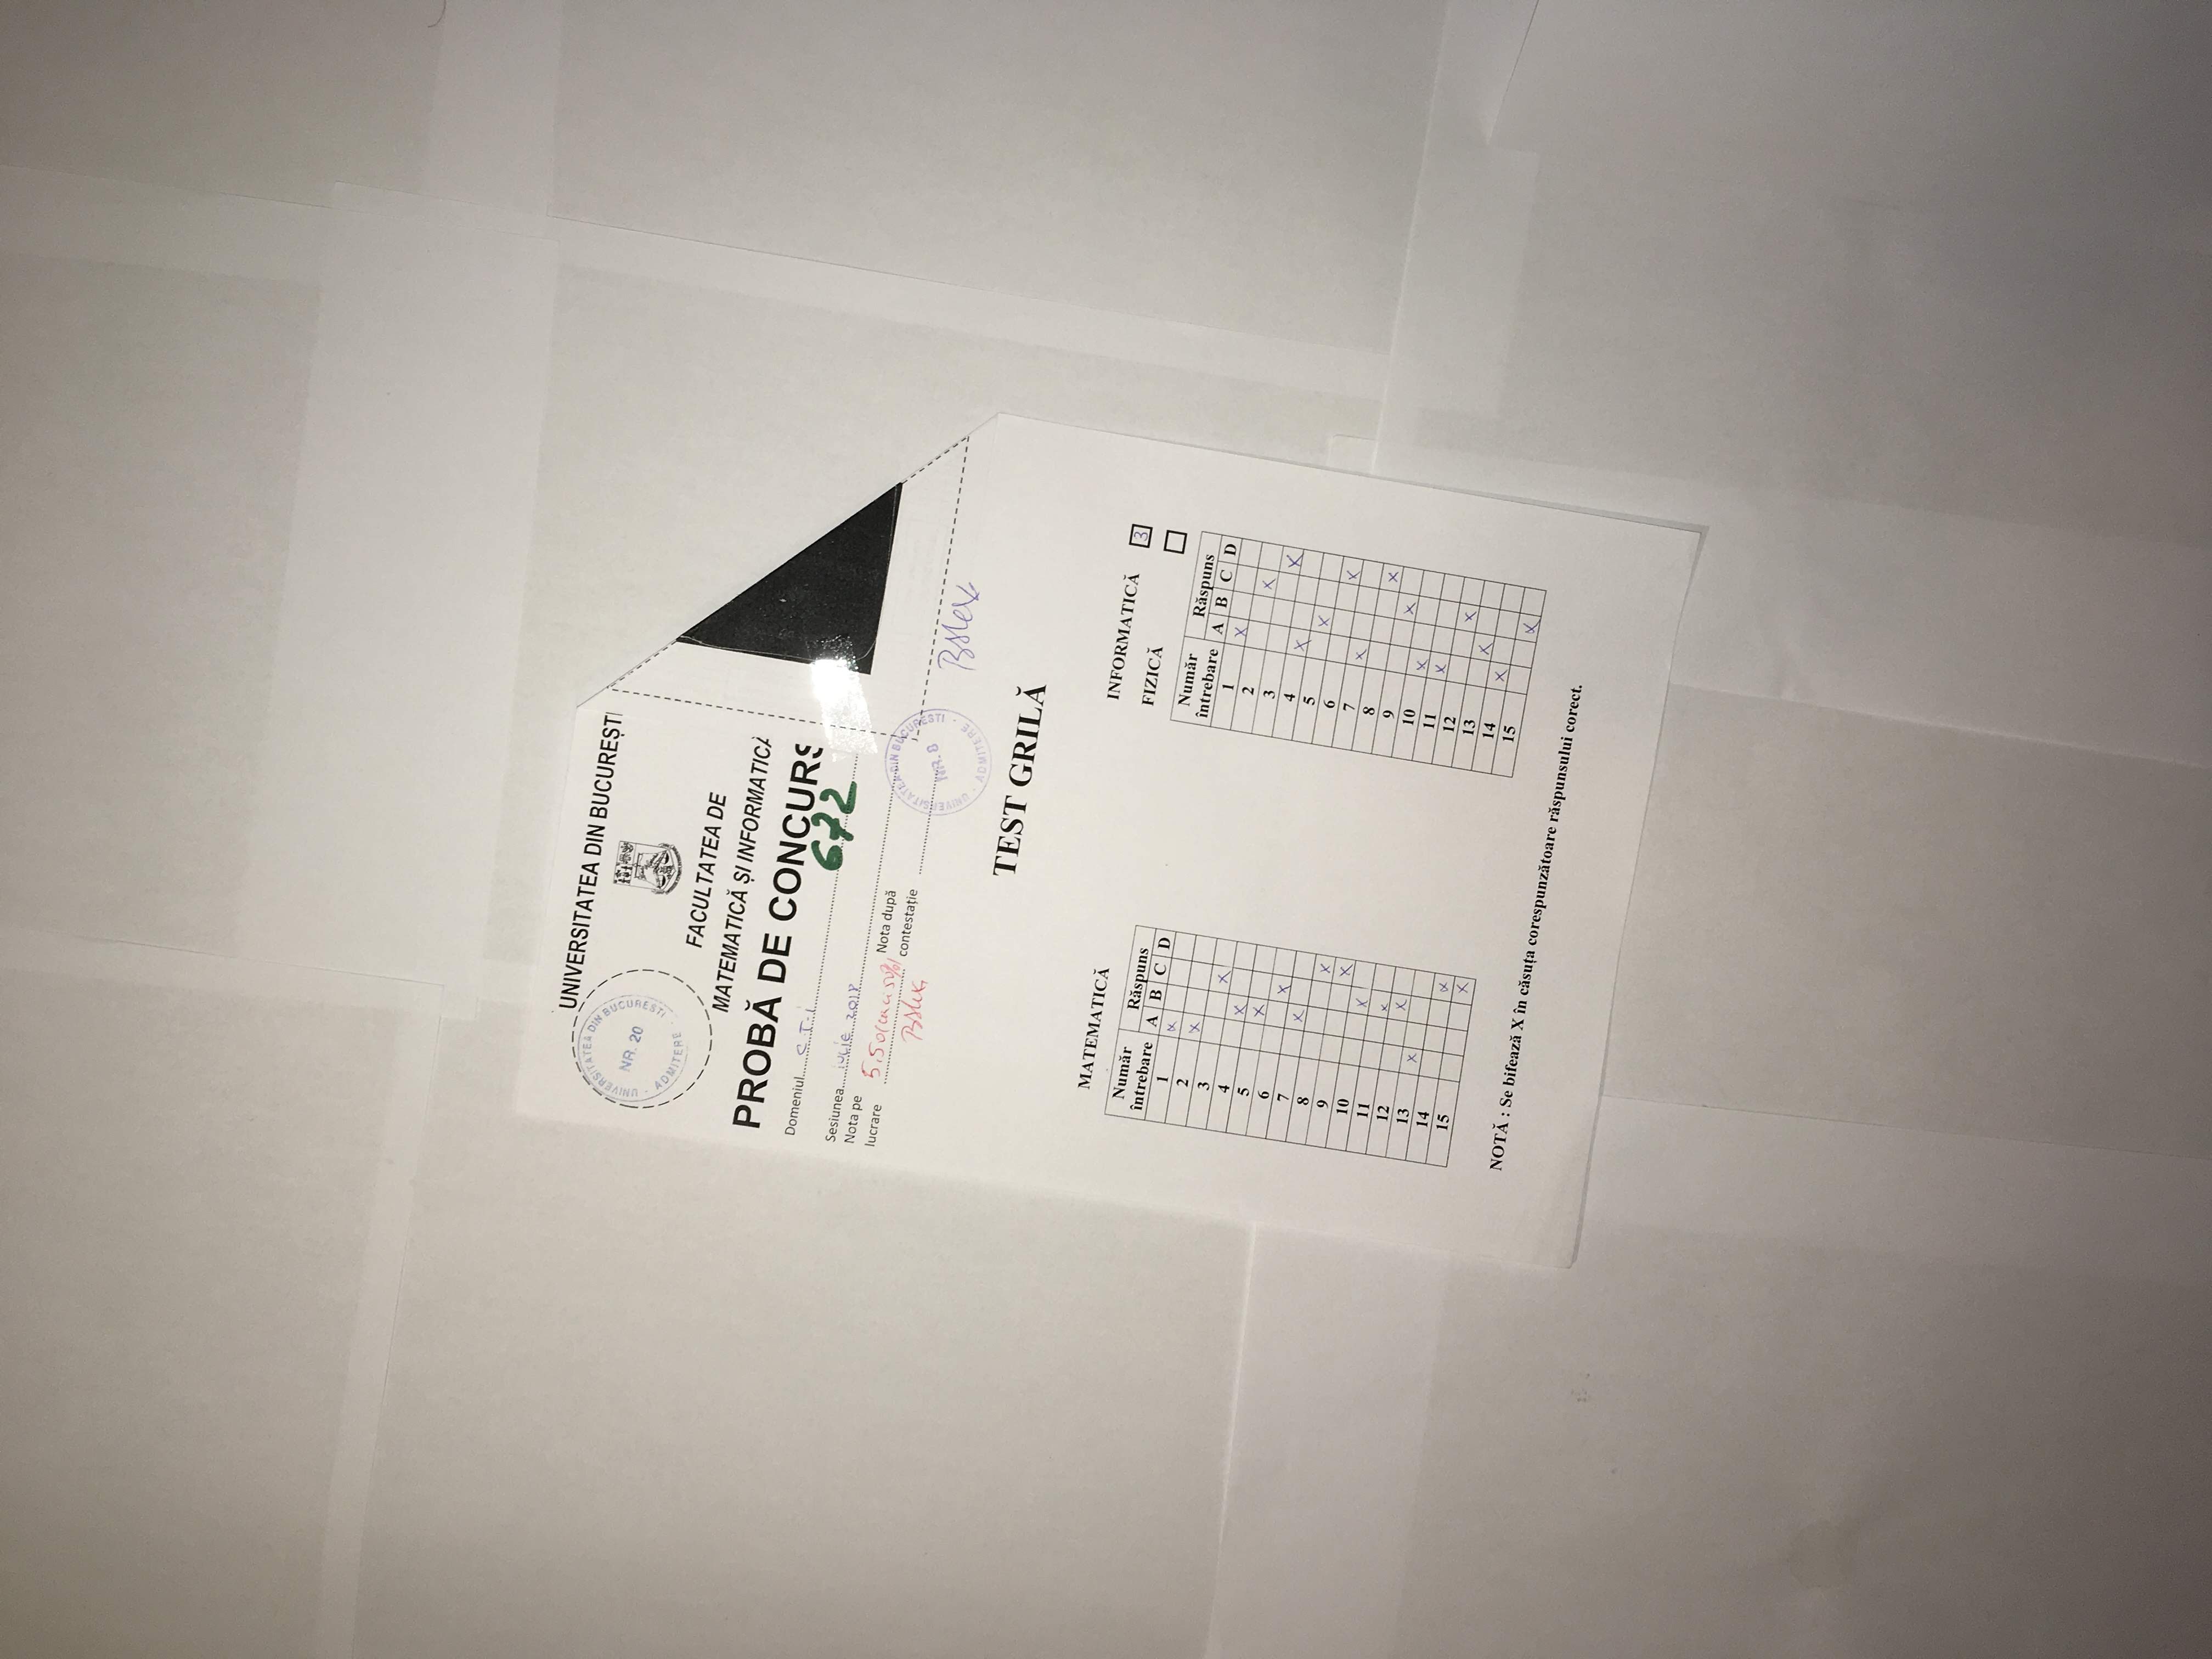 UNIVERSITATEA DIN BUCUREȘTI
UNIVERSITATEA DIN BUCURESTI
NR. 20
ADMITERE
FACULTATEA DE
MATEMATICĂ ȘI INFORMATICĂ
PROBĂ DE CONCURS
Domeniul CTI
672
Sesiunea iulie 2018
Nota pe lucrare 5,50
Nota după contestație
UNIVERSITATEA DIN BUCURESTI
NR. 8
ADMITERE
TEST GRILĂ
MATEMATICĂ
Număr întrebare Răspuns
A B C D
1 x
2 x
3 x
4 x
5 x
6 x
7 x
8 x
9 x
10 x
11 x
12 x
13 x
14 x
15 x
INFORMATICĂ 3
FIZICĂ
Număr întrebare Răspuns
A B C D
1 x
2 x
3 x
4 x
5 x
6 x
7 x
8 x
9 x
10 x
11 x
12 x
13 x
14 x
15 x
NOTĂ : Se bifează X în căsuța corespunzătoare răspunsului corect.